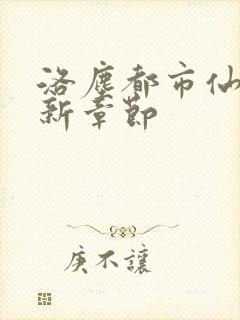 洛塵都市仙
新章節
庚不讓